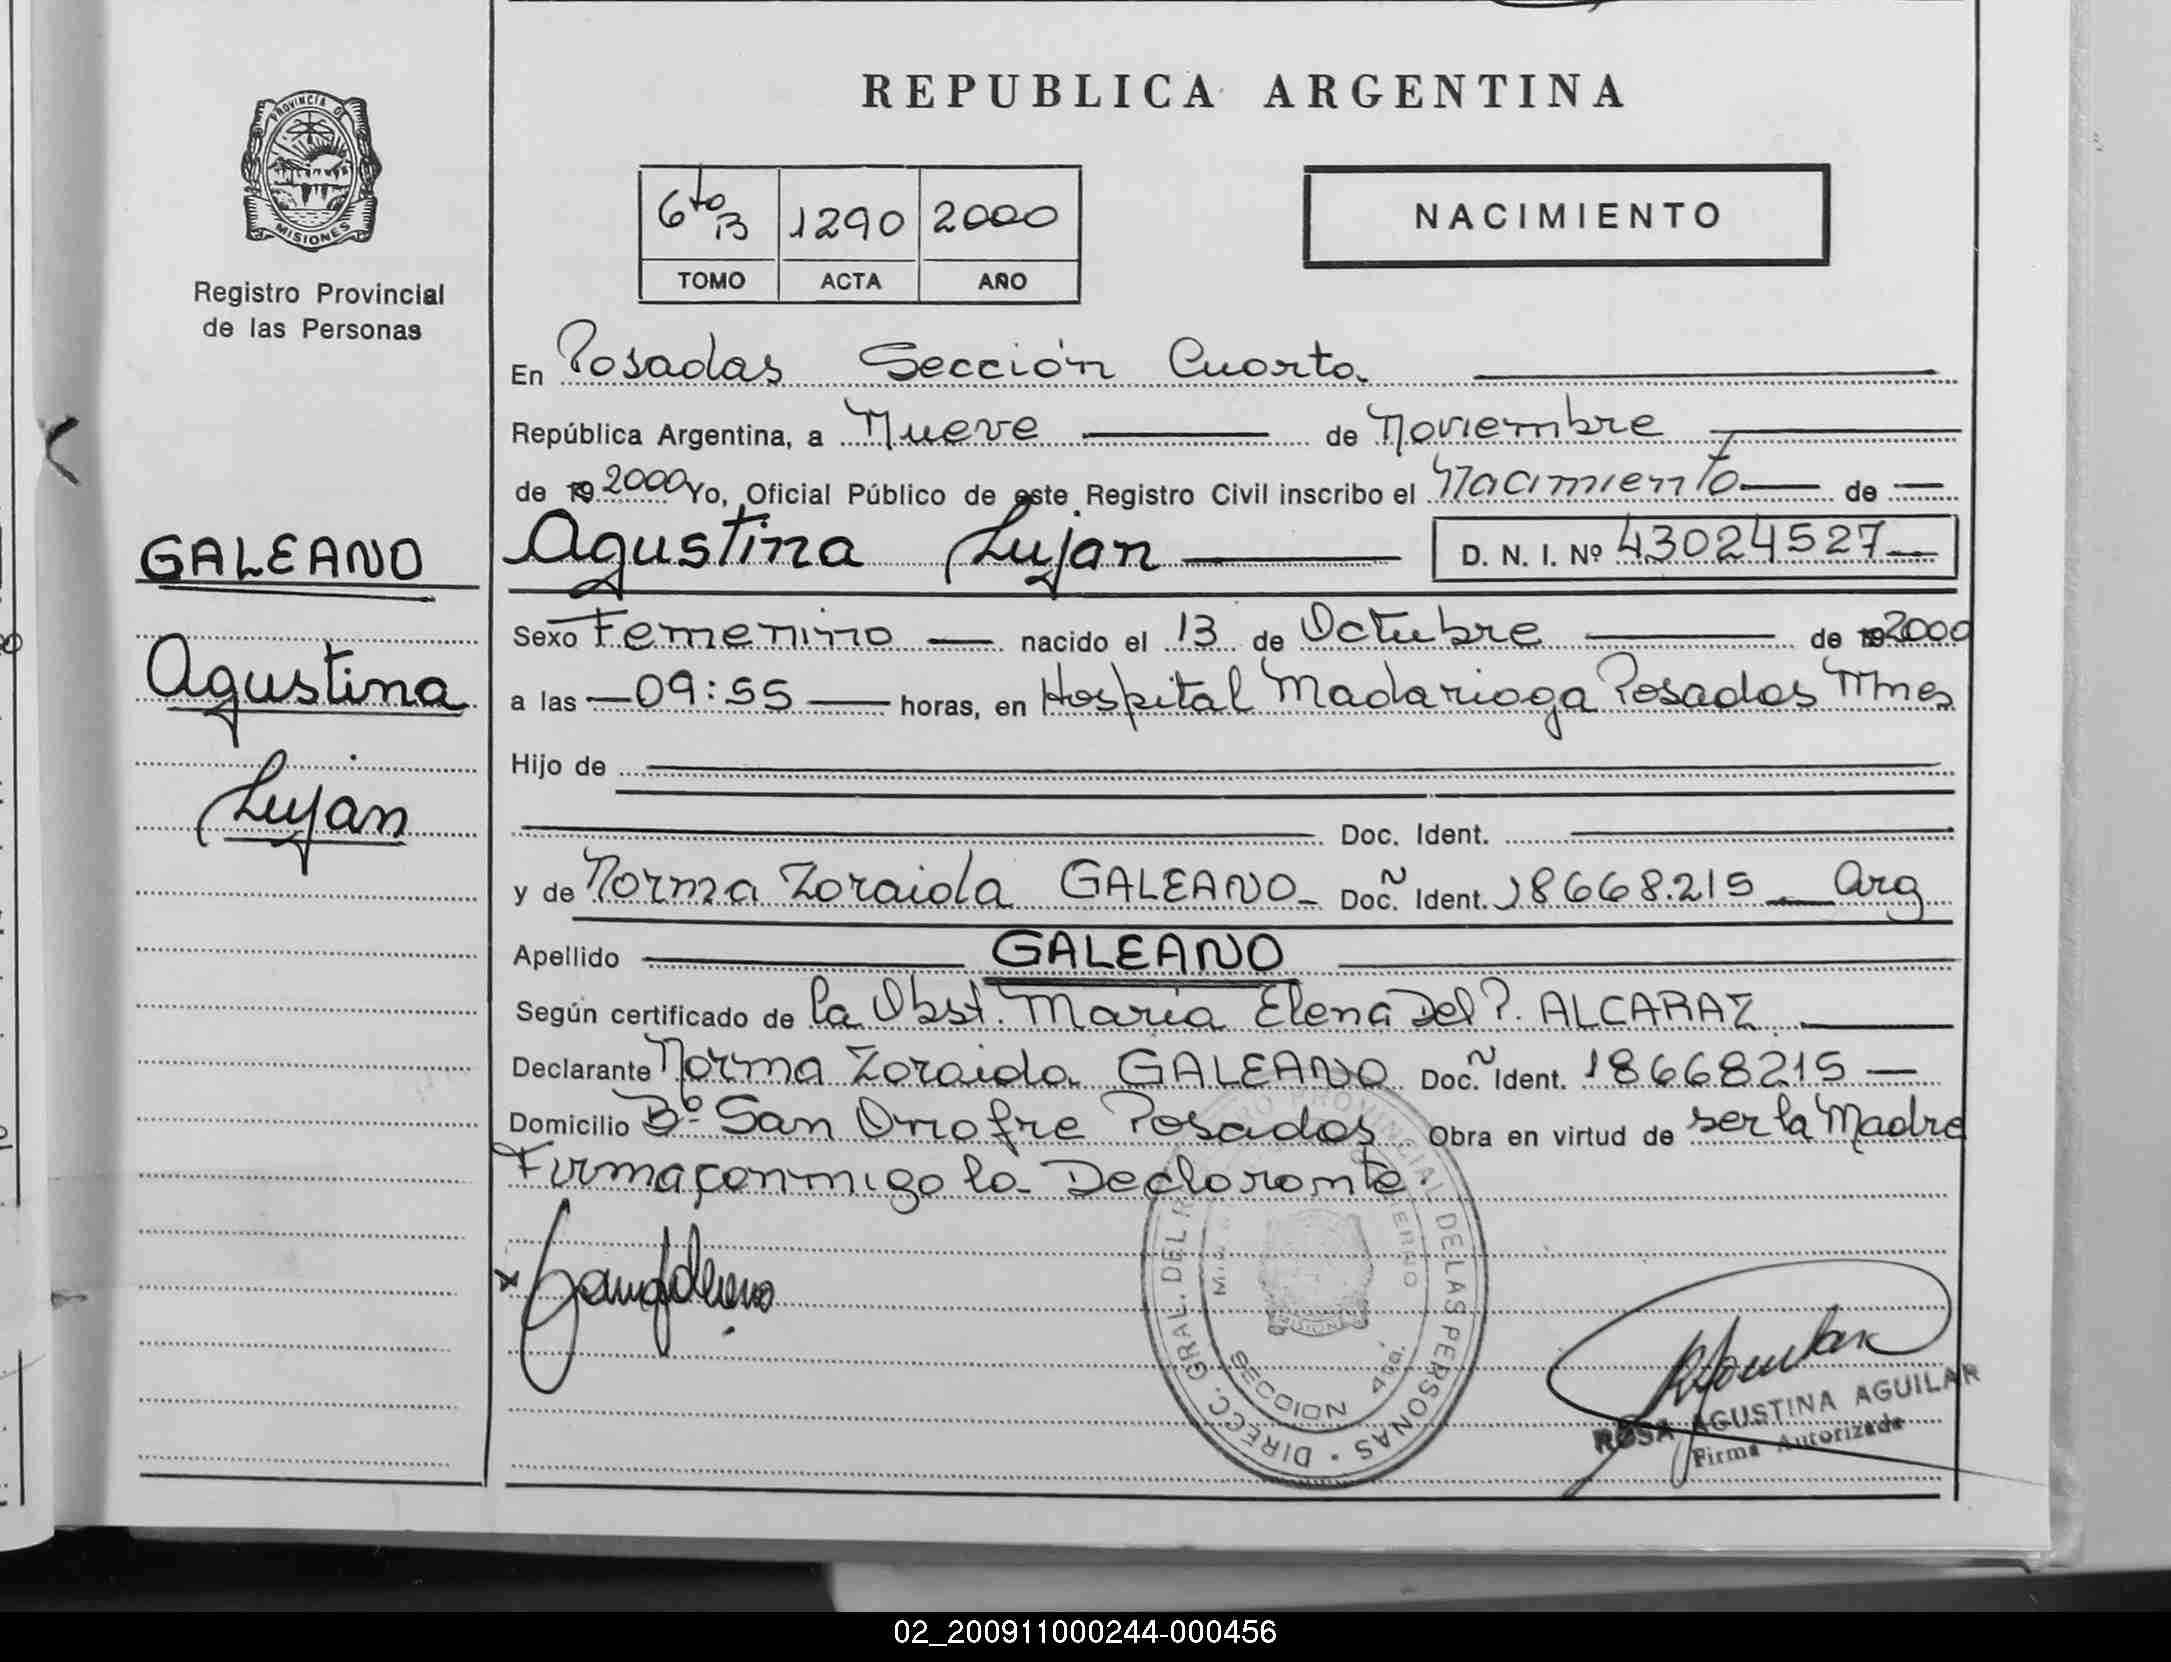 REPUBLICA ARGENTINA
PROVINCIA D
MISIONES
Registro Provincial
de las Personas
6to B 1290 2000
TOMO ACTA AÑO
NACIMIENTO
En Posadas Sección Cuarta
República Argentina, a Nueve de Noviembre
de 19 2000 Yo, Oficial Público de este Registro Civil inscribo el Nacimiento de
GALEANO
Agustina
Lujan
Agustina Lujan D. N. I. Nº 43024527
Sexo Femenino nacido el 13 de Octubre de 19 2000
a las 09:55 horas, en Hospital Madariaga Posadas Mnes
Hijo de
Doc. Ident.
y de Norma Zoraida GALEANO Doc. Ident. 18668.215 Arg
Apellido GALEANO
Según certificado de la Obst. María Elena Del P. ALCARAZ
Declarante Norma Zoraida GALEANO Doc. Ident. 18668215
Domicilio Bº San Onofre Posadas Obra en virtud de ser la Madre
Firma conmigo la Declarante.
DIRECC. GRAL. DEL R RO PROVINCIAL DE LAS PERSONAS
SECCION 4ta.
MISIONES
ROSA AGUSTINA AGUILAR
Firma Autorizada
02_200911000244-000456